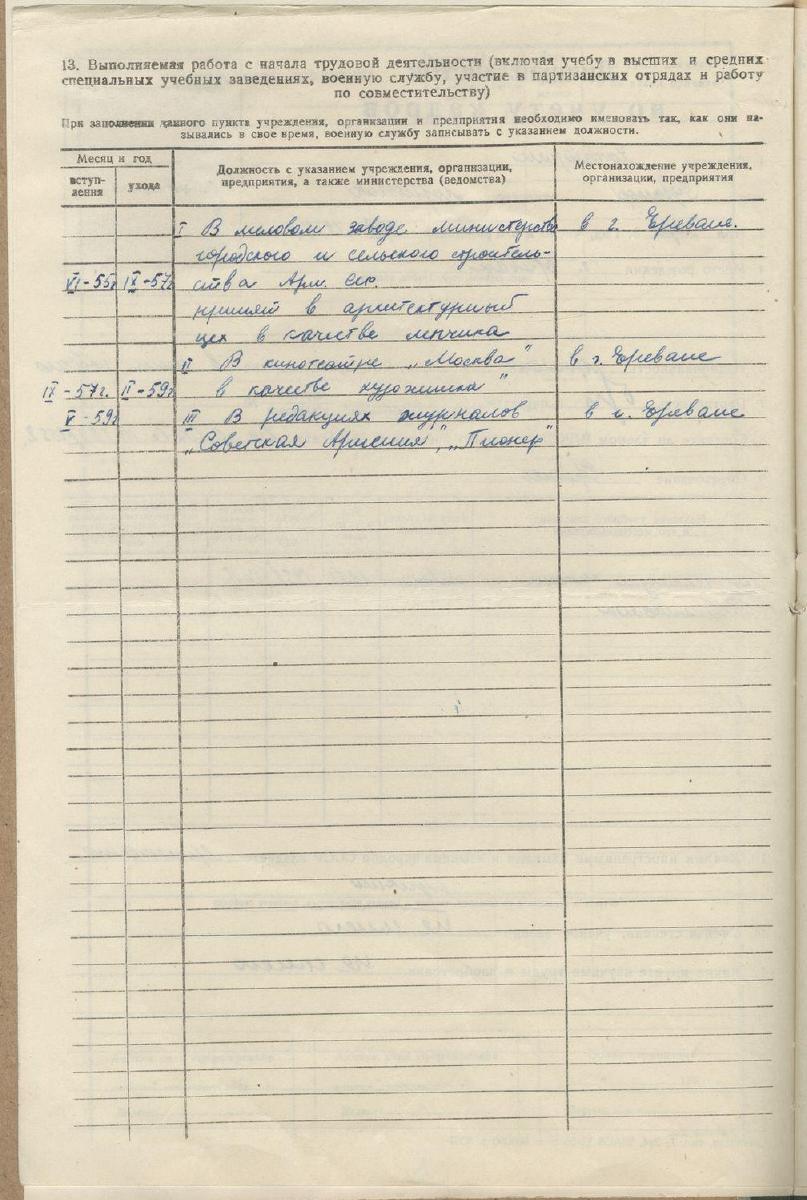 13. Выполняемая работа с начала трудовой деятельности (включая учебу в высших и средних
специальных учебных заведениях, военную службу, участие в партизанских отрядах и работу
по совместительству)
При заполнении данного пункта учреждения, организации и предприятия необходимо именовать так, как они на-
зывались в свое время, военную службу записывать с указанием должности.
Месяц и год
вступ-
ления
ухода
Должность с указанием учреждения, организации,
предприятия, а также министерства (ведомства)
Местонахождение учреждения,
организации, предприятия
I В заводе министерства в г. Ереване.
городского и сельского строитель-
VI-55г IX-57г ства Арм. сср.
принят в архитектурный
цех в качестве лепчика
II В кинотеатре „Москва" в г. Ереване
IX-57г. II-59г в качестве художника"
V-59г III В редакциях журналов в г. Ереване
„Советская Армения", „Пионер"